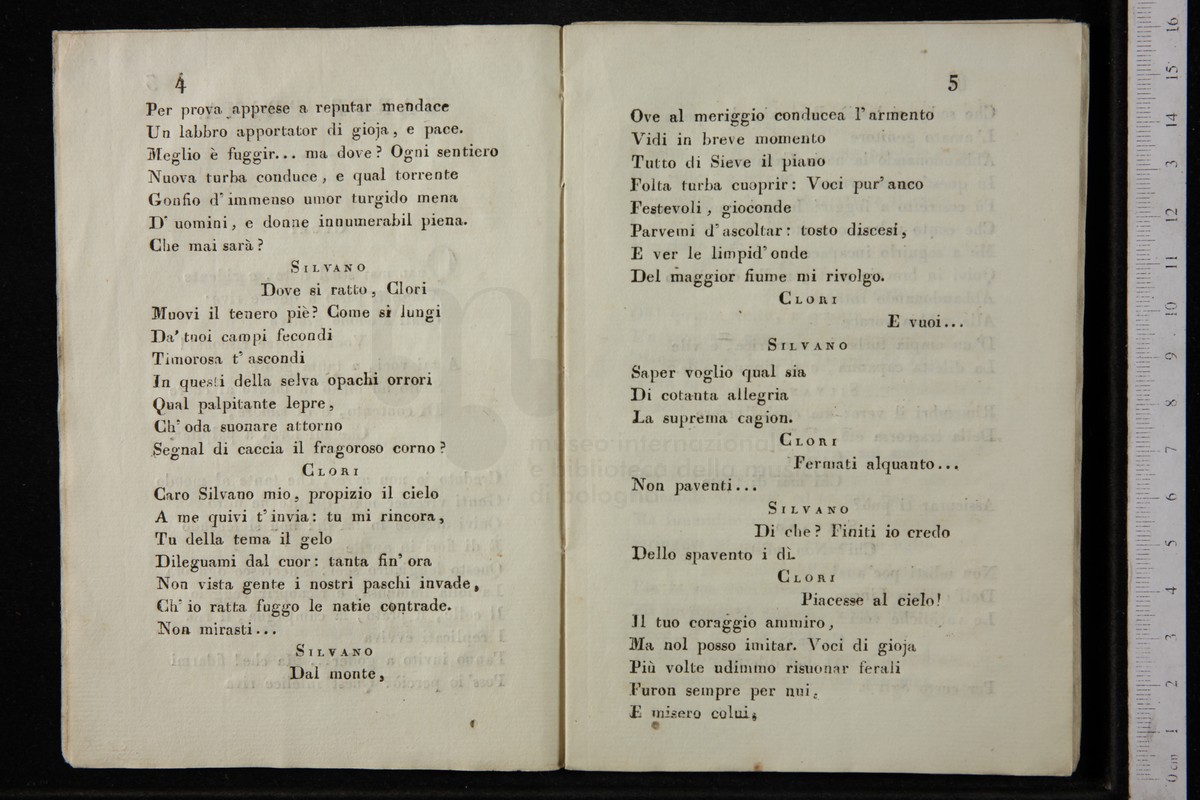 4
Per prova apprese a reputar mendace
Un labbro apportator di gioja, e pace.
Meglio è fuggir... ma dove? Ogni sentiero
Nuova turba conduce, e qual torrente
Gonfio d'immenso umor turgido mena
D'uomini, e donne innumerabil piena.
Che mai sarà?
SILVANO
Dove si ratto, Clori
Muovi il tenero piè? Come sì lungi
Da' tuoi campi fecondi
Timorosa t'ascondi
In questi della selva opachi orrori
Qual palpitante lepre,
Ch'oda suonare attorno
Segnal di caccia il fragoroso corno?
CLORI
Caro Silvano mio, propizio il cielo
A me quivi t'invia: tu mi rincora,
Tu della tema il gelo
Dileguami dal cuor: tanta fin'ora
Non vista gente i nostri paschi invade,
Ch'io ratta fuggo le natie contrade.
Non mirasti...
SILVANO
Dal monte,
5
Ove al meriggio conducea l'armento
Vidi in breve momento
Tutto di Sieve il piano
Folta turba cuoprir: Voci pur'anco
Festevoli, gioconde
Parvemi d'ascoltar: tosto discesi,
E ver le limpid'onde
Del maggior fiume mi rivolgo.
CLORI
E vuoi...
SILVANO
Saper voglio qual sia
Di cotanta allegria
La suprema cagion.
CLORI
Fermati alquanto...
Non paventi...
SILVANO
Di che? Finiti io credo
Dello spavento i dì.
CLORI
Piacesse al cielo!
Il tuo coraggio ammiro,
Ma nol posso imitar. Voci di gioja
Più volte udimmo risuonar ferali
Furon sempre per nui,
E misero colui,
museo internazionale
e biblioteca della musica
di bologna
0 cm 1 2 3 4 5 6 7 8 9 10 11 12 13 14 15 16